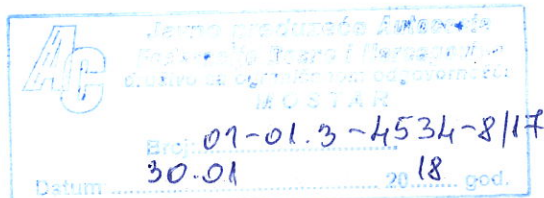 AC
Javno preduzeće Autoceste
Federacije Bosne i Hercegovine
društvo sa ograničenom odgovornošću
MOSTAR
Broj: 01-01.3-4534-8/17
Datum 30.01 2018 god.